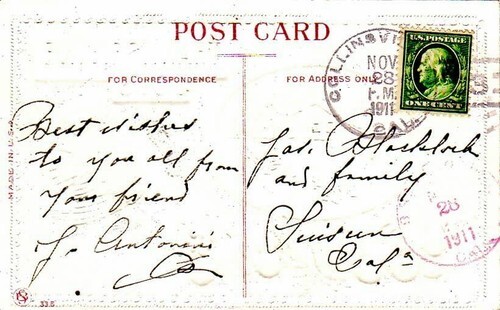 POST CARD
FOR CORRESPONDENCE
FOR ADDRESS ONLY
COLLINSVI
NOV
28
P.M.
1911
CAL.
U.S. POSTAGE
ONE CENT
MADE IN U.S.A.
Best Wishes
to you all from
your friend
J. Antonini
Jas. Blacklock
and family
Suisun
Cala
28
1911
CAL.